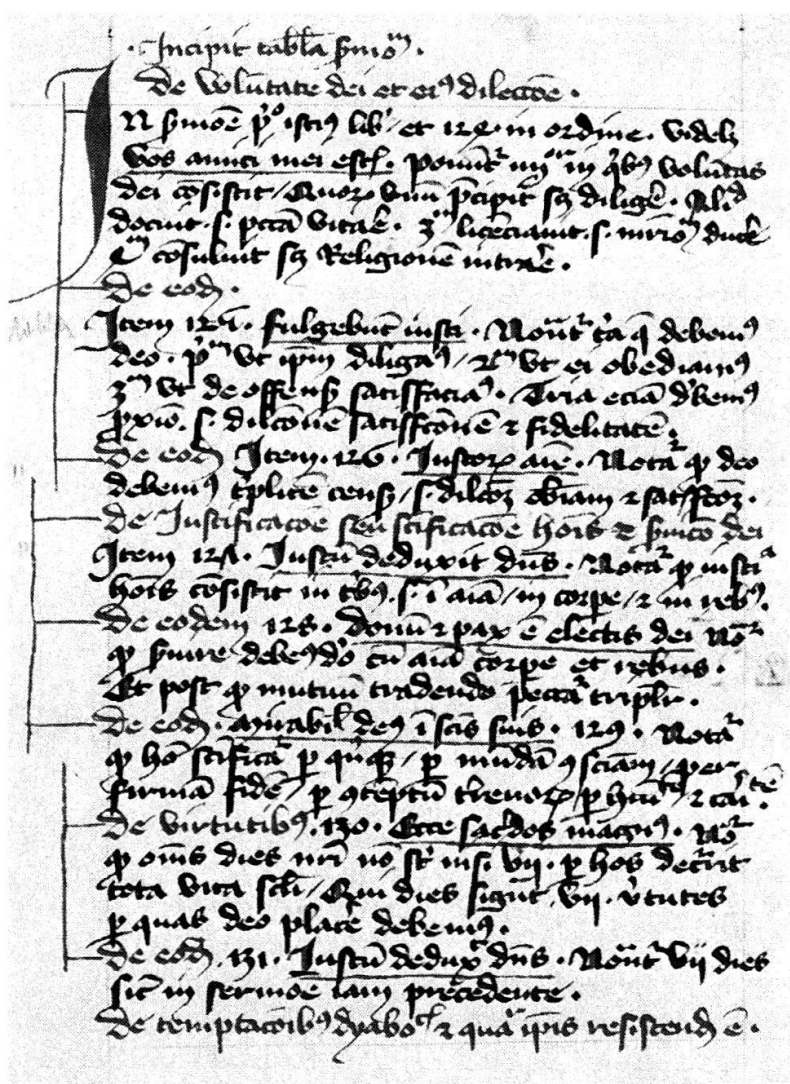 Incipit tabl̄a ẜmoꝝ.
De volūtate dei et eiꝰ dilecc̄oe.
IN ẜmoē p̄º istiꝰ lib̄ / et 124 in ordine. videlꝫ
vos amici mei est̄. ponūt᷑ iiij in q̇bꝰ volūtas
dei cōsistit / Quoꝝ vnū p̄cipit sꝫ diligē. Aliđ
docuit .s. pctā vitaē. 3m licēciauit .s. ducē
4m cōsuluit sꝫ Religionē intraē.
De eođ.
Item 125. fulgebūt iusti. Notāt᷑ tʼa q̄ debemꝰ
deo. pm vt ip̄m diligaꝰ / 2m vt ei obediamꝰ
3m vt de offensꝭ satisfaciaꝰ. Tria eciā đbemꝰ
ꝓxiō .s. dilc̄onē satisfc̄onē ⁊ fidelitatē.
De eođ Item. 126. Iustoꝝ aīe. Notāt᷑ ꝙ deo
debemꝰ tʼplicē censꝭ / .s. dilc̄oꝫ ob̄iam ⁊ satisfc̄oꝫ.
De Iustificac̄oe seu sc̄ificac̄oe hoīs ⁊ ẜuic̄o dei
Item 127. Iustū deduxit dn̄s. Notāt᷑ ꝙ iusticia
hoīs cōsistit in tʼbꝰ .s. ī aīa / in corpe / ⁊ in rebꝰ.
De eodem 128. Donū ⁊ pax ē electis dei Not᷑
ꝙ ẜuire debemꝰ đo cū aīa corpe et rebus.
Et post ꝙ mutuū tradendo peccāt᷑ triplr̄.
De eođ. Mirabil̄ deꝰ ī sc̄is suis. 129. Notāt᷑
ꝙ hō sc̄ificāt᷑ ꝑ / ꝑ mūdā ꝯsciam / per
firmā fidē / ꝑ ꝯtēptū tʼrenoꝝ / ꝑ ⁊
De virtutibꝰ. 130. Ecce sac̄dos magnꝰ. Not᷑
ꝙ om̄s dies nr̄i nō st̄ nisi vij. ꝑ hos decʼrit
tota vita scl̄i / Qui dies sigūt vij. vʼtutes
ꝑ quas deo placē debemꝰ.
De eođ .131. Iustū dedux̄ dn̄s. Notāt᷑ vij dies
sic̄ in sermōe iam precedente.
De temptac̄oibꝰ dyabol̄ ⁊ quāt᷑ ip̄is resistenđ ē.